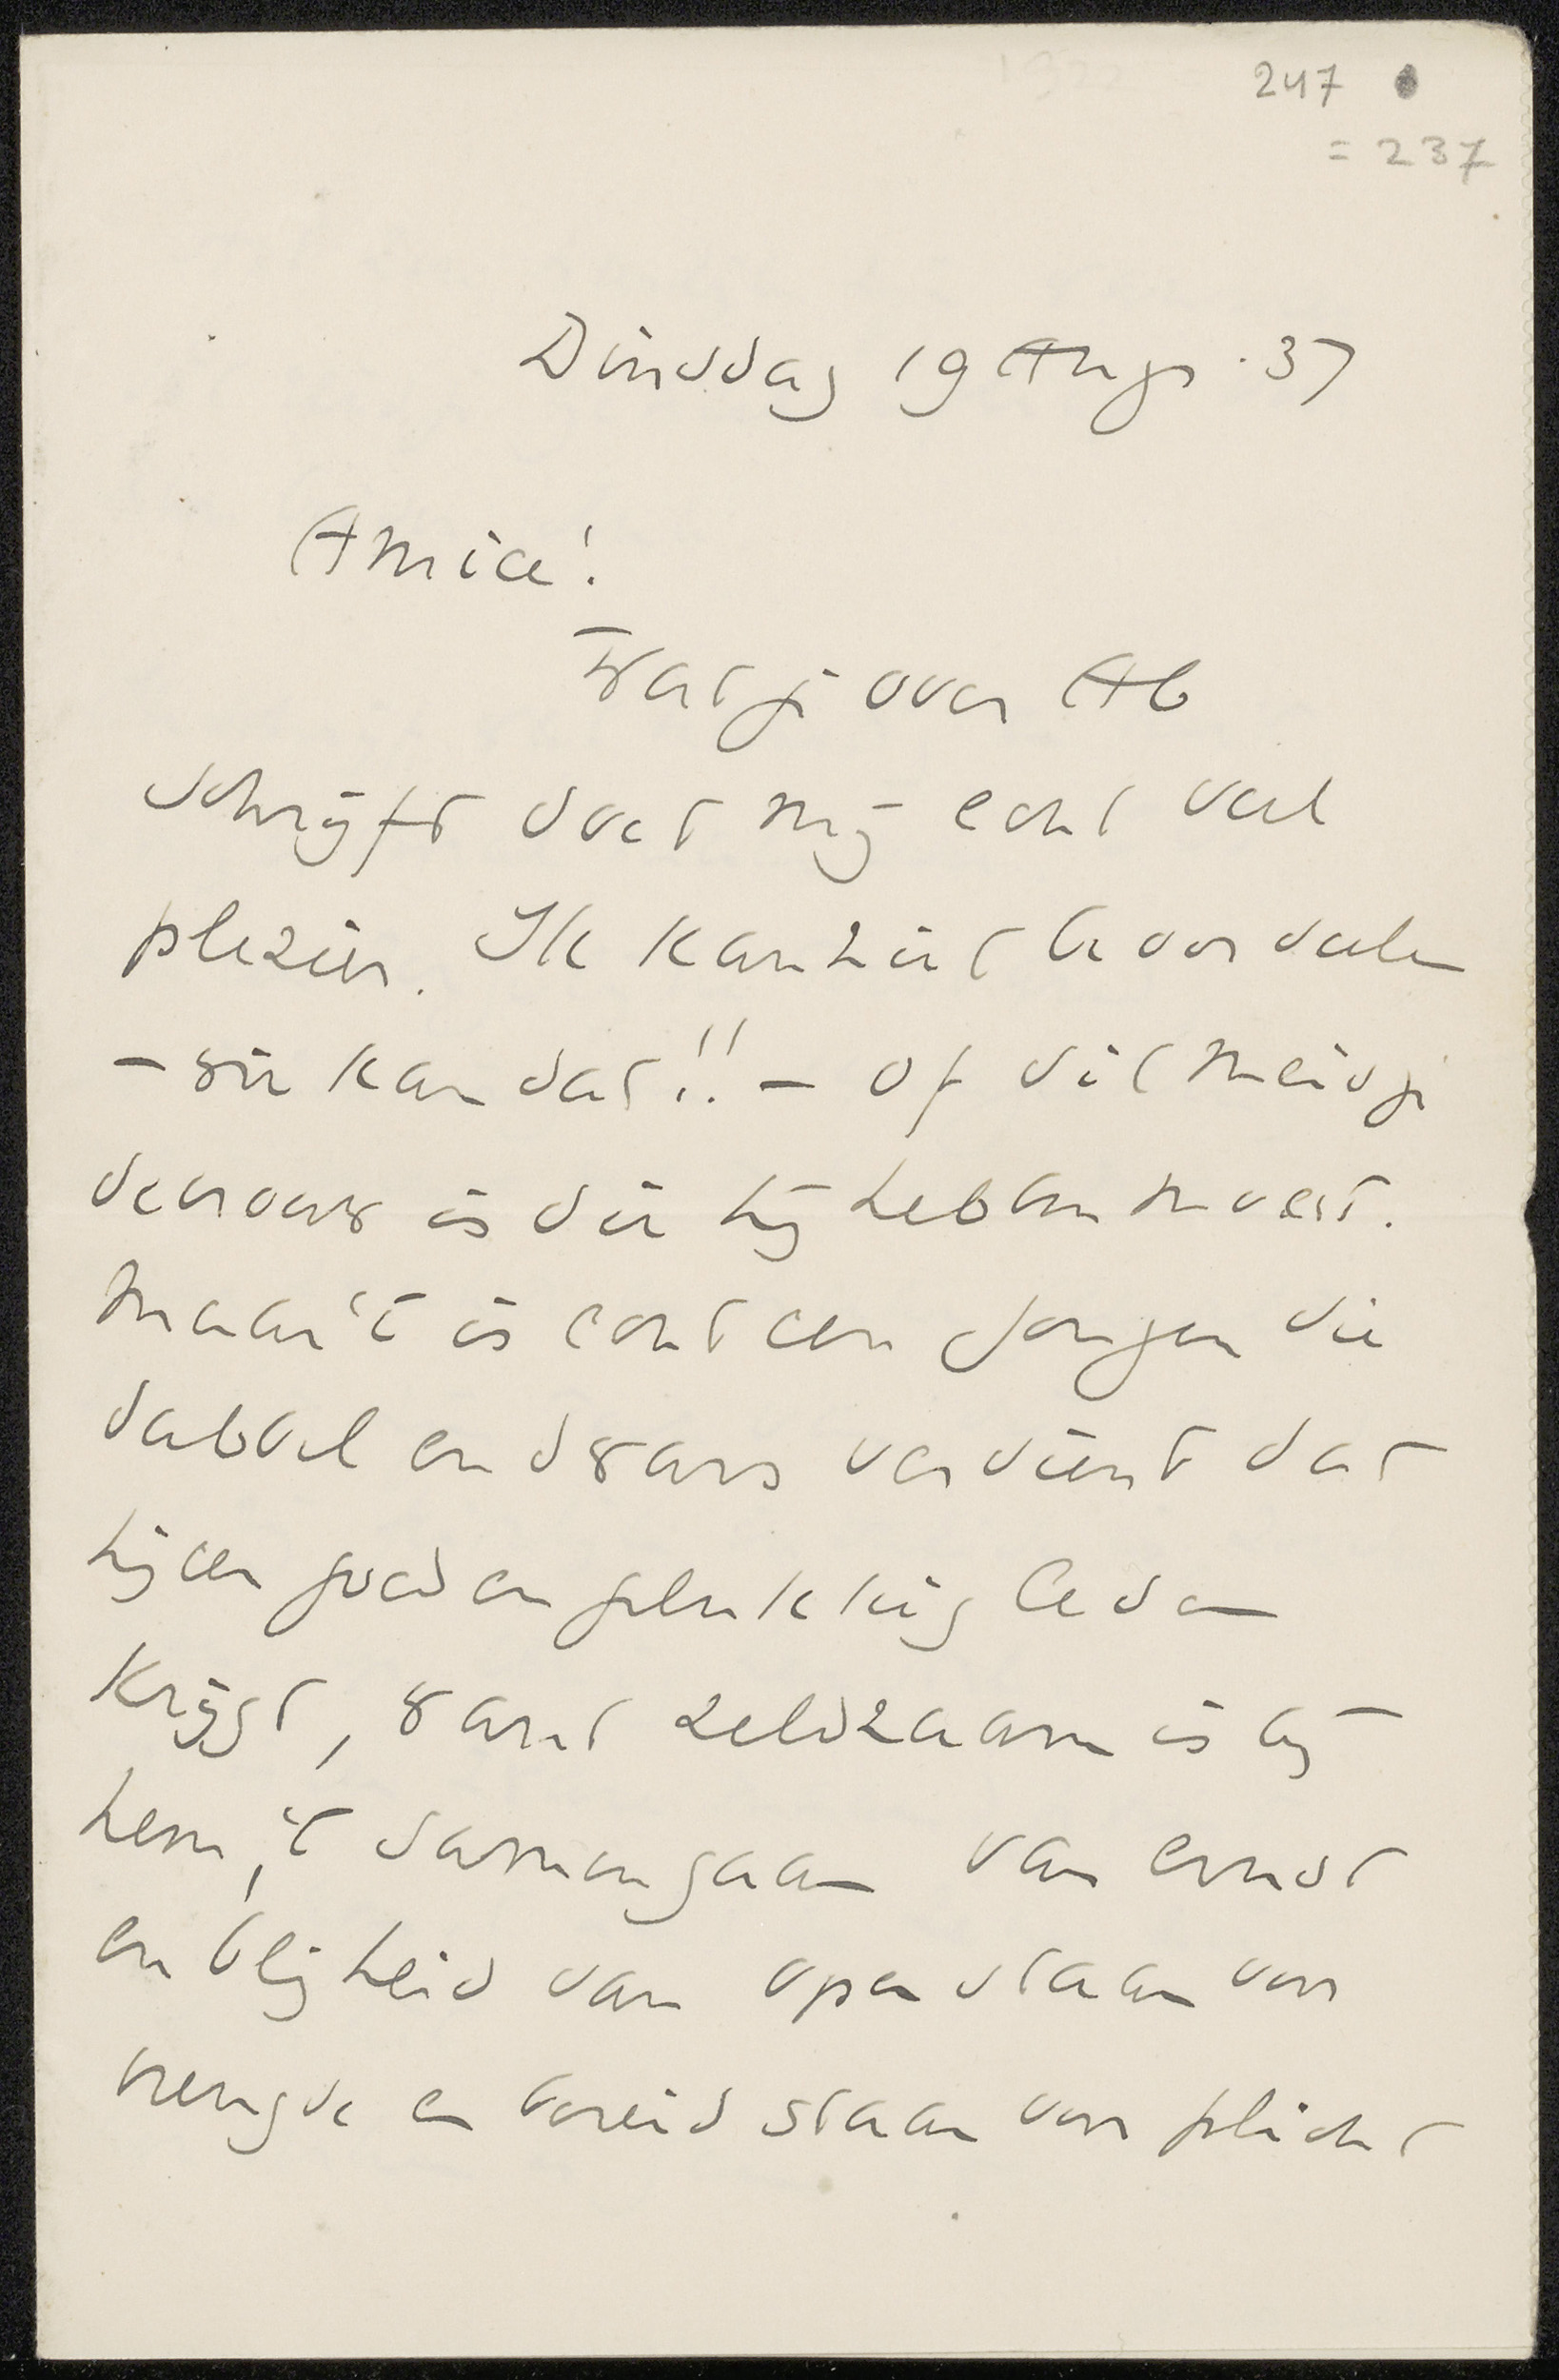 247
= 237
Dinsdag 19 Aug. 37
Amice!
Wat je over Ab
schrijft doet mij echt veel
plezier. Ik kan niet beoordeelen
- wie kan dat!! - of dit meisje
de vrouw is die hij hebben moest.
Maar 't is echt een jongen die
dubbel en dwars verdient dat
hij een goed en gelukkig leven
krijgt, want zeldzaam is bij
hem, 't samengaan van ernst
en blijheid van open staan voor
vreugde en bereid staan voor plicht